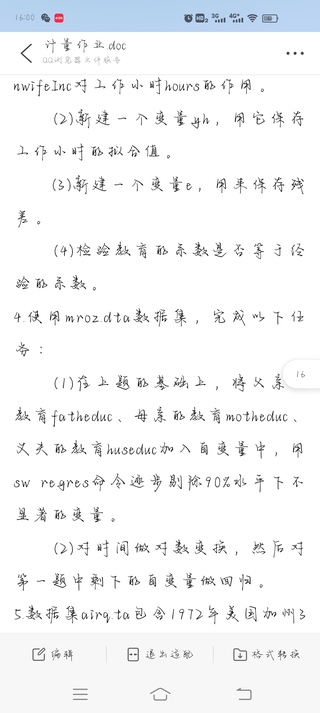 16:00
计量作业.doc
QQ浏览器文件服务
nwifeInc对工作小时hours的作用。
(2)新建一个变量yh，用它保存
工作小时的拟合值。
(3)新建一个变量e，用来保存残
差。
(4)检验教育的系数是否等于经
验的系数。
4.使用mroz.dta数据集，完成以下任
务：
(1)在上题的基础上，将父亲
教育fatheduc、母亲的教育motheduc、
丈夫的教育huseduc加入自变量中，用
sw regres命令逐步剔除90%水平下不
显著的变量。
(2)对时间做对数变换，然后对
第一题中剩下的自变量做回归。
5.数据集airq.ta包含1972年美国加州3
16
编辑
退出适配
格式转换